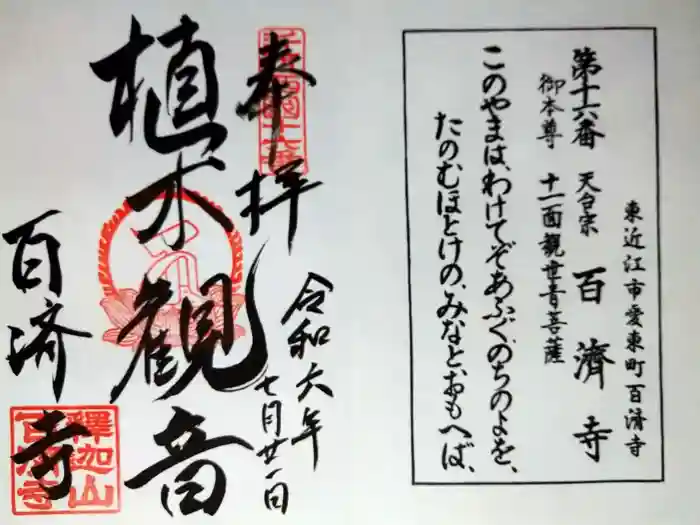 東近江市愛東町百済寺
第十六番 天台宗 百濟寺
御本尊 十一面観世音菩薩
このやまは、わけてぞあふぐ、のちのよを、
たのむほとけの、みなと、おもへば、
奉拝
令和六年
七月廿一日
植木観音
百済寺
釋迦山
百済寺